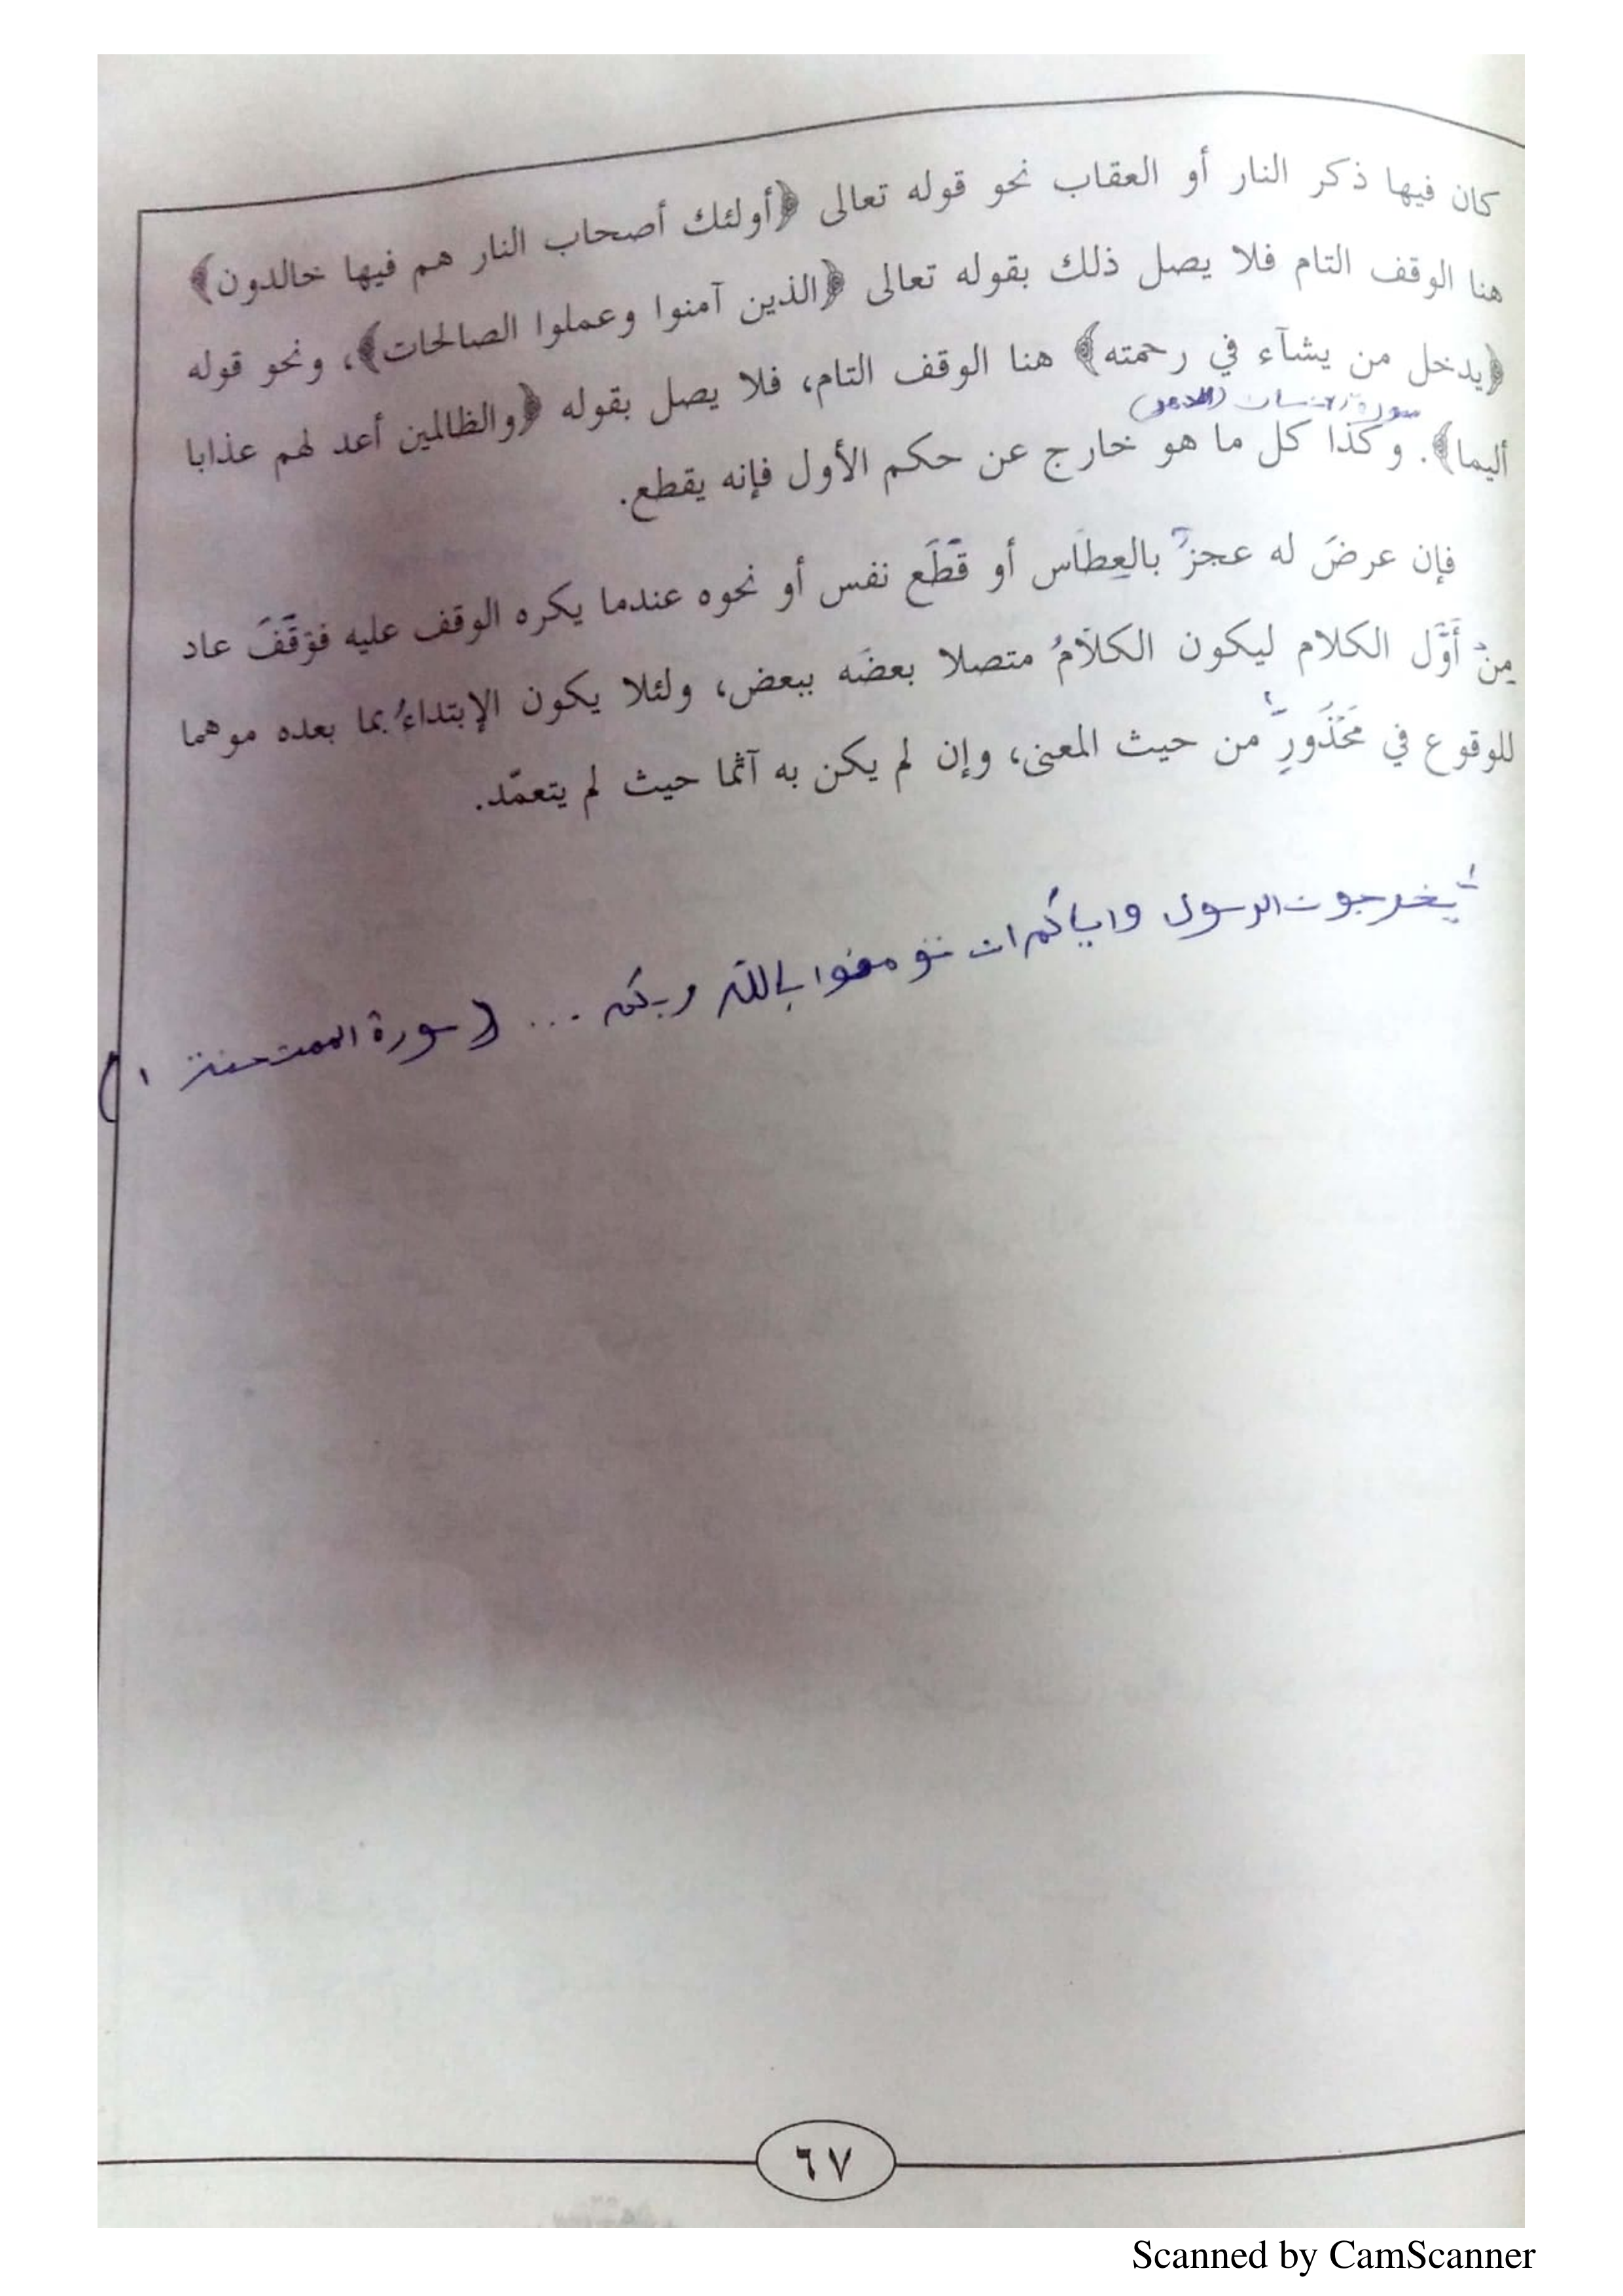 كان فيها ذكر النار أو العقاب نحو قوله تعالى ﴿أولئك أصحاب النار هم فيها خالدون﴾
هنا الوقف التام فلا يصل ذلك بقوله تعالى ﴿الذين آمنوا وعملوا الصالحات﴾، ونحو قوله
﴿يدخل من يشآء في رحمته﴾ هنا الوقف التام، فلا يصل بقوله ﴿والظالمين أعد لهم عذابا
سورة الانسان (الدهر)
أليما﴾. وكذا كل ما هو خارج عن حكم الأول فإنه يقطع.
فإن عرضَ له عجزٌ بالعِطَاس أو قَطَع نفس أو نحوه عندما يكره الوقف عليه فوَقَفَ عاد
مِنْ أَوَّل الكلام ليكون الكلامُ متصلا بعضَه ببعض، ولئلا يكون الإبتداءُ بما بعده موهما
للوقوع في مَحْذُورٍ من حيث المعنى، وإن لم يكن به آثما حيث لم يتعمّد.
يخرجون الرسول واياكم ان تؤمنوا بالله ربكم ... (سورة الممتحنة ١)
٦٧
Scanned by CamScanner